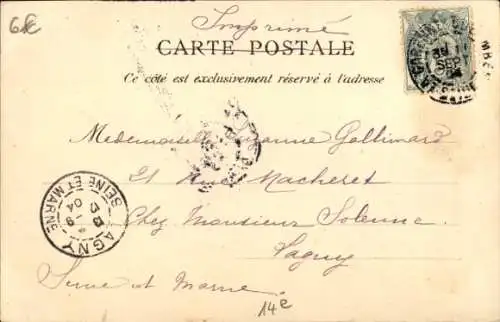 6€
Imprimé
CARTE POSTALE
Ce côté est exclusivement réservé à l'adresse
SEP
Mademoiselle Suzanne Gallimard
21 Rue Macheret
Chez Monsieur Solenne
Lagny
Seine et Marne
LAGNY
SEINE ET MARNE
04
14e